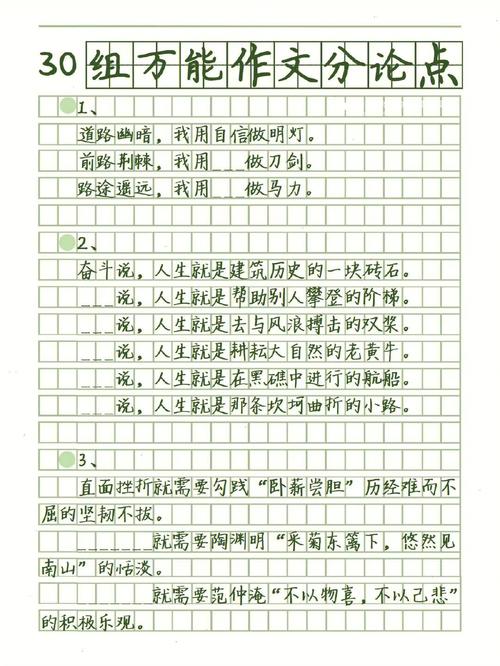 30组万能作文分论点
1、
道路幽暗，我用自信做明灯。
前路荆棘，我用___做刀剑。
路途遥远，我用___做马力。
2、
奋斗说，人生就是建筑历史的一块砖石。
___说，人生就是帮助别人攀登的阶梯。
___说，人生就是去与风浪搏击的双桨。
___说，人生就是耕耘大自然的老黄牛。
___说，人生就是在黑礁中进行的航船。
___说，人生就是那条坎坷曲折的小路。
3、
直面挫折就需要勾践“卧薪尝胆”历经难而不
屈的坚韧不拔。
_______就需要陶渊明“采菊东篱下，悠然见
南山”的恬淡。
_______就需要范仲淹“不以物喜，不以己悲”
的积极乐观。